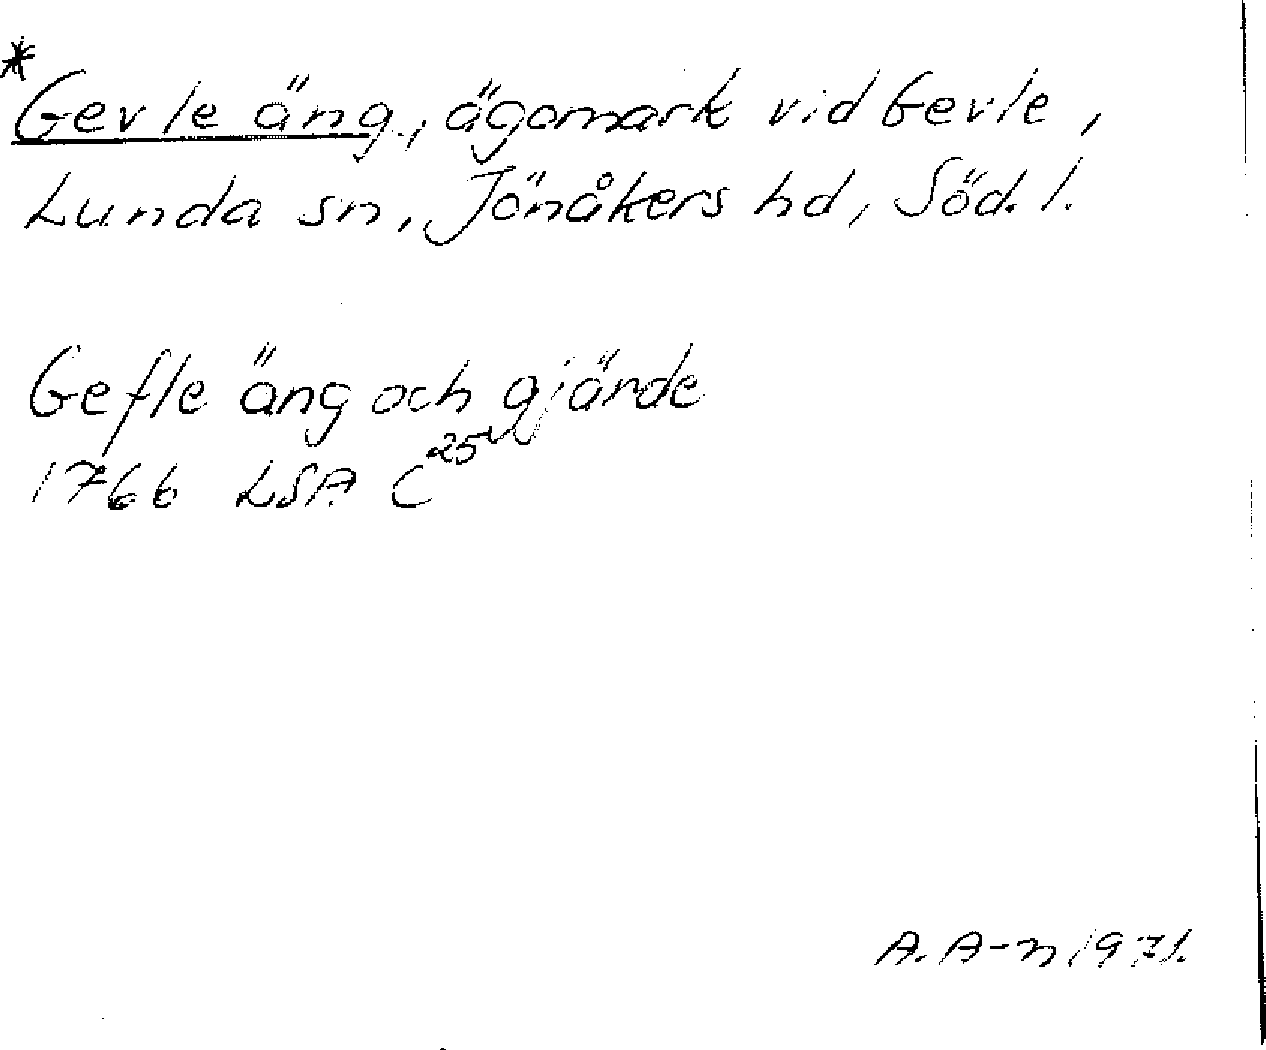 *
Gevle äng, ägomark vid Gevle,
Lunda sn, Jönåkers hd, Söd. l.
Gefle äng och gjärde
1766 LSA C 25
A. A-n 1971.